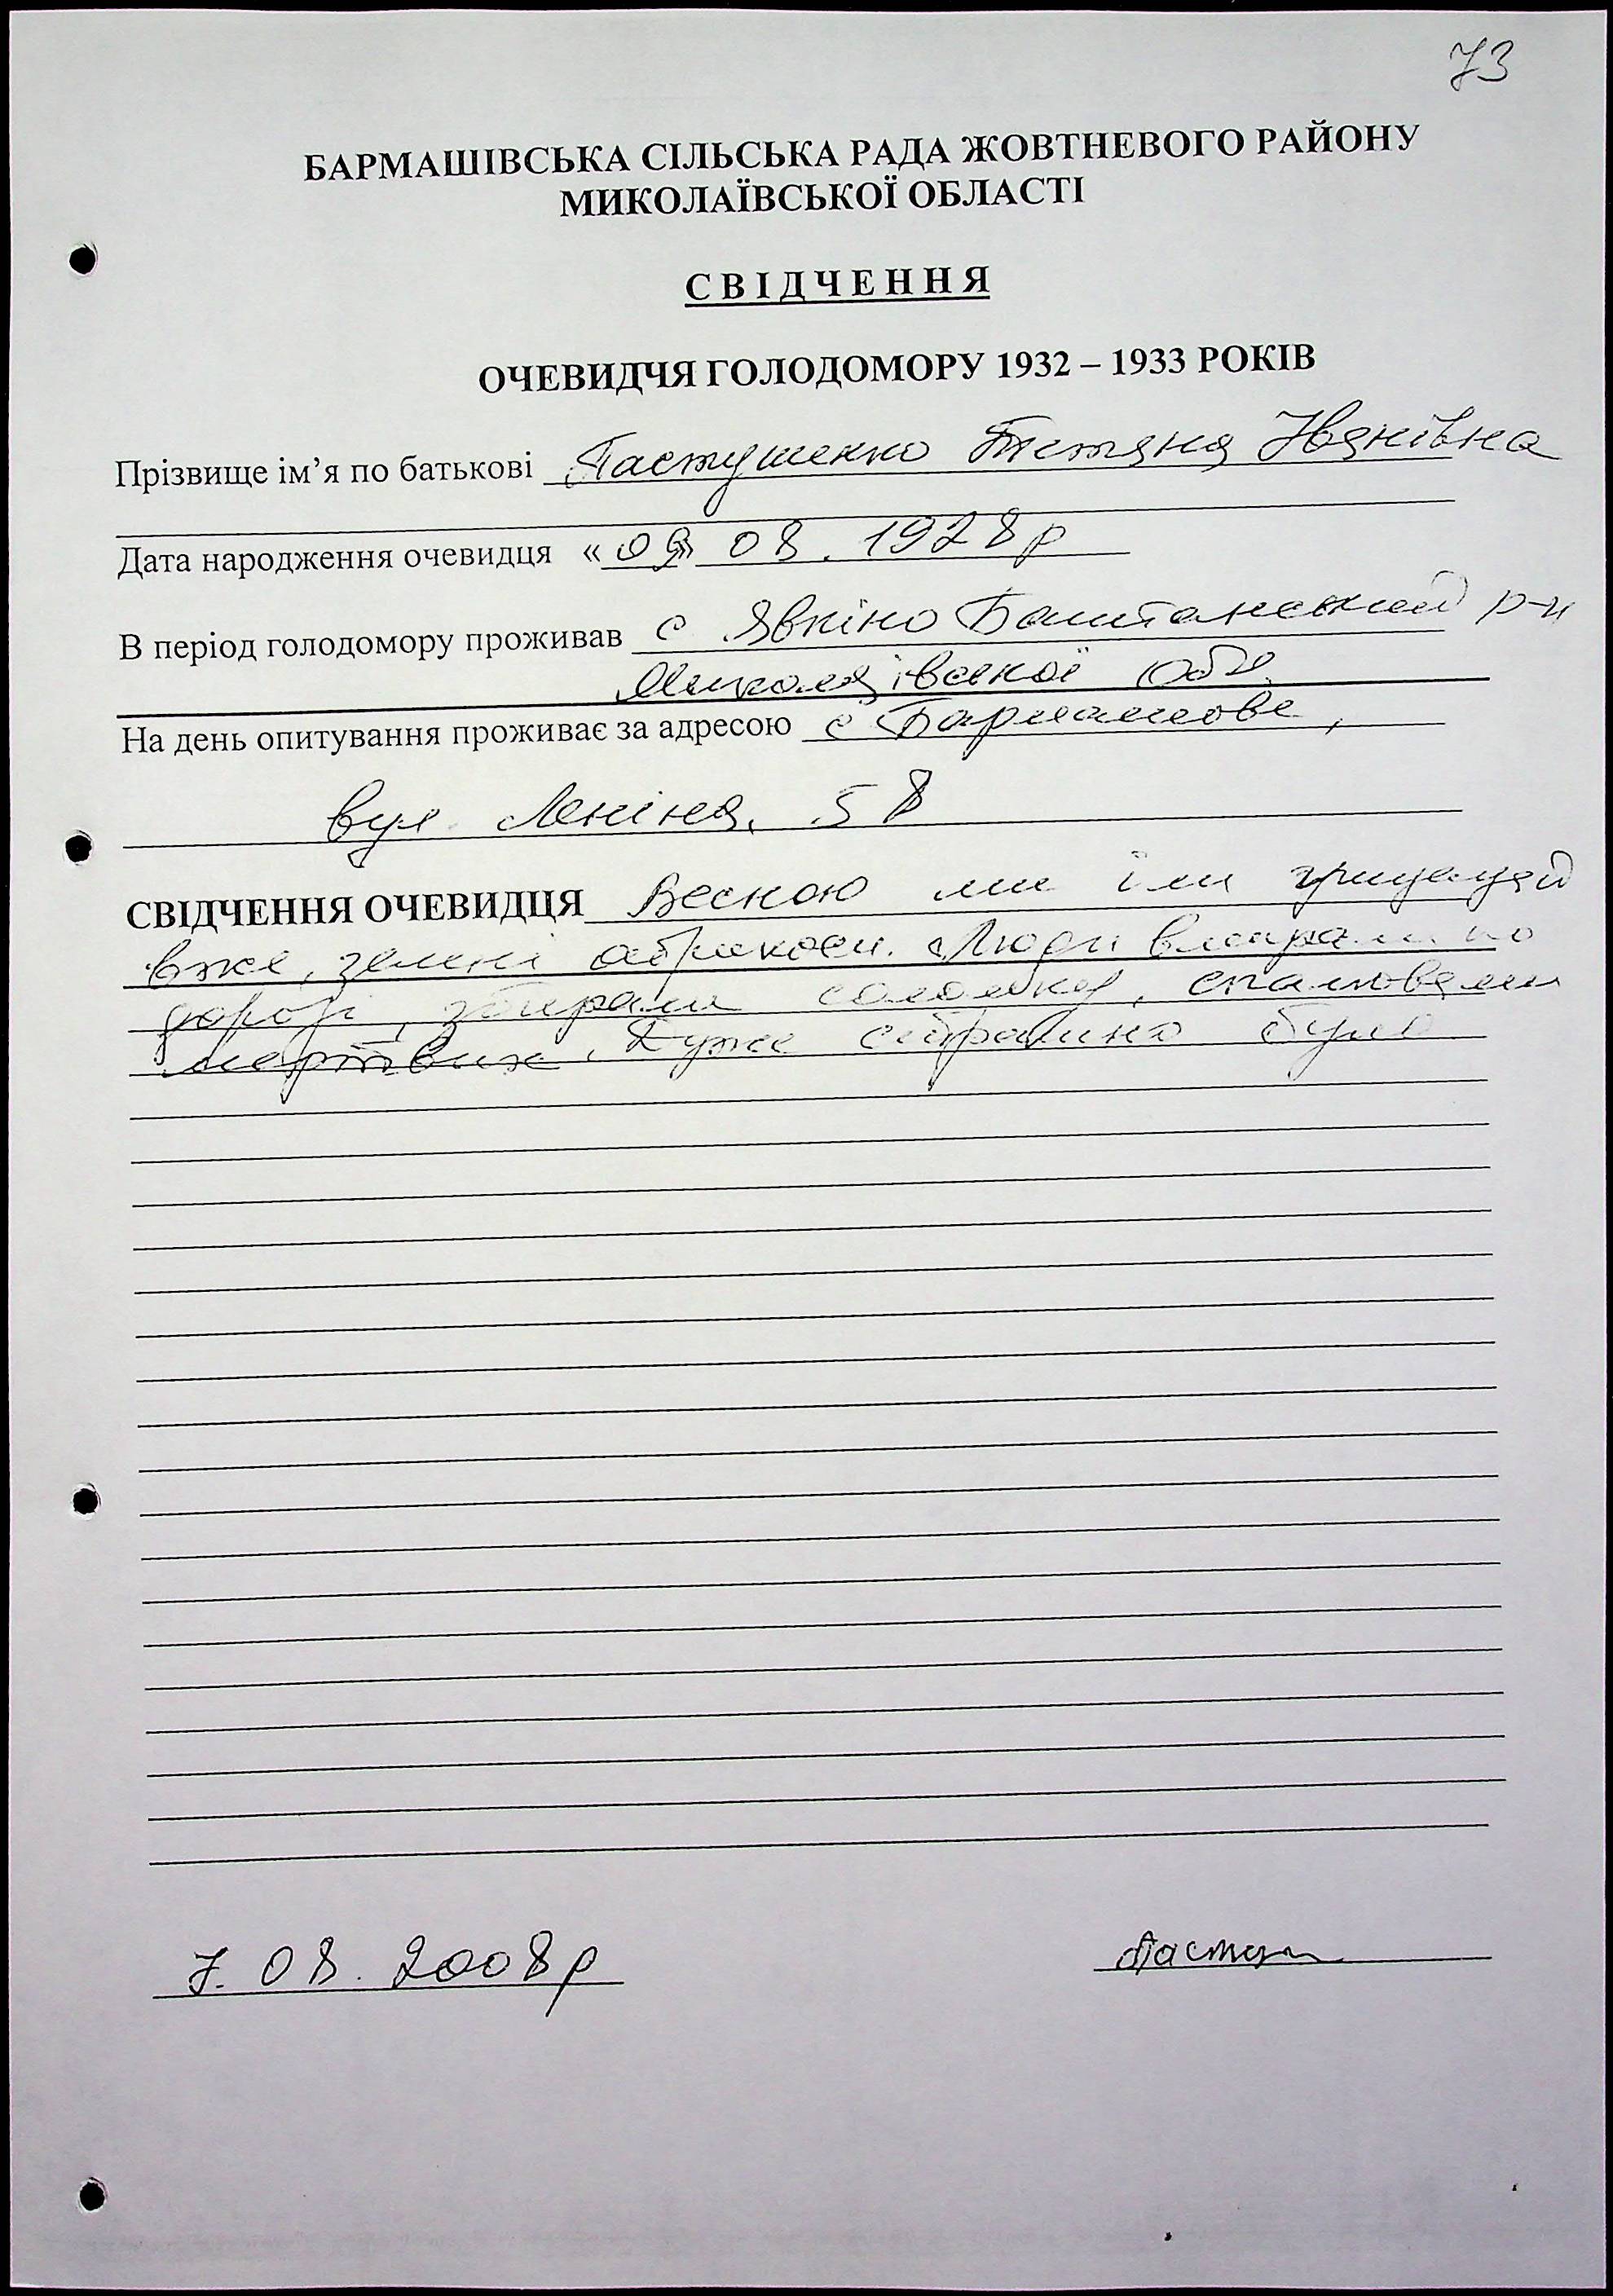 73
БАРМАШІВСЬКА СІЛЬСЬКА РАДА ЖОВТНЕВОГО РАЙОНУ
МИКОЛАЇВСЬКОЇ ОБЛАСТІ
СВІДЧЕННЯ
ОЧЕВИДЧЯ ГОЛОДОМОРУ 1932 – 1933 РОКІВ
Прізвище ім’я по батькові Пастушенко Тетяна Іванівна
Дата народження очевидця «09» 08. 1928р
В період голодомору проживав с Явкіно Баштанський р-н
Миколаївської обл.
На день опитування проживає за адресою с Бармашове,
вул. Леніна, 58
СВІДЧЕННЯ ОЧЕВИДЦЯ Весною ми їли
вже, зелені абрикоси. Люди вмирали по
дорозі, збирали соломку, спалювали
мертвих. Дуже страшно було
7. 08. 2008р
Пастуш